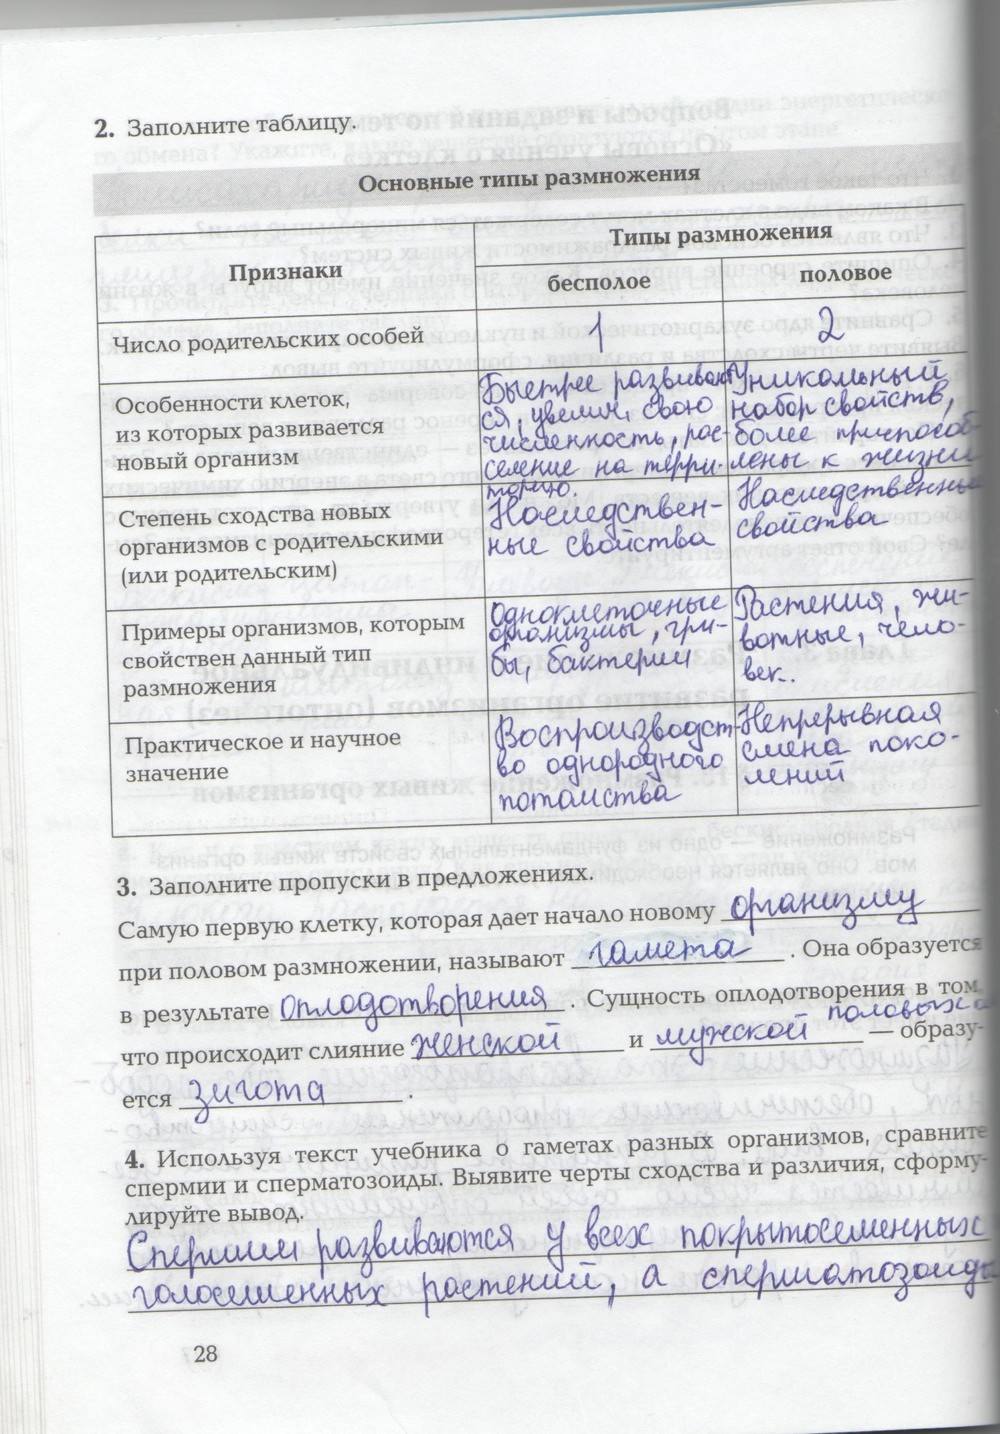 2. Заполните таблицу.
Основные типы размножения
Признаки
Типы размножения
бесполое
половое
Число родительских особей
1
2
Особенности клеток,
из которых развивается
новый организм
Быстрее развивают
ся, увелич. свою
численность, рас-
селение на терри-
торию.
Уникольный
набор свойств,
более приспособ-
лены к жизни
Степень сходства новых
организмов с родительскими
(или родительским)
Наследствен-
ные свойства
Наследственные
свойства
Примеры организмов, которым
свойствен данный тип
размножения
Одноклеточные
организмы, гри-
бы, бактерии
Растения, жи-
вотные, чело-
век.
Практическое и научное
значение
Воспроизводст-
во однородного
потомства
Непрерывная
смена поко-
лений
3. Заполните пропуски в предложениях.
Самую первую клетку, которая дает начало новому организму
при половом размножении, называют гамета . Она образуется
в результате оплодотворения . Сущность оплодотворения в том,
что происходит слияние женской и мужской половых — образу-
ется зигота .
4. Используя текст учебника о гаметах разных организмов, сравните
спермии и сперматозоиды. Выявите черты сходства и различия, сформу-
лируйте вывод.
Спермии развиваются у всех покрытосеменных
голосеменных растений, а сперматозоиды
28